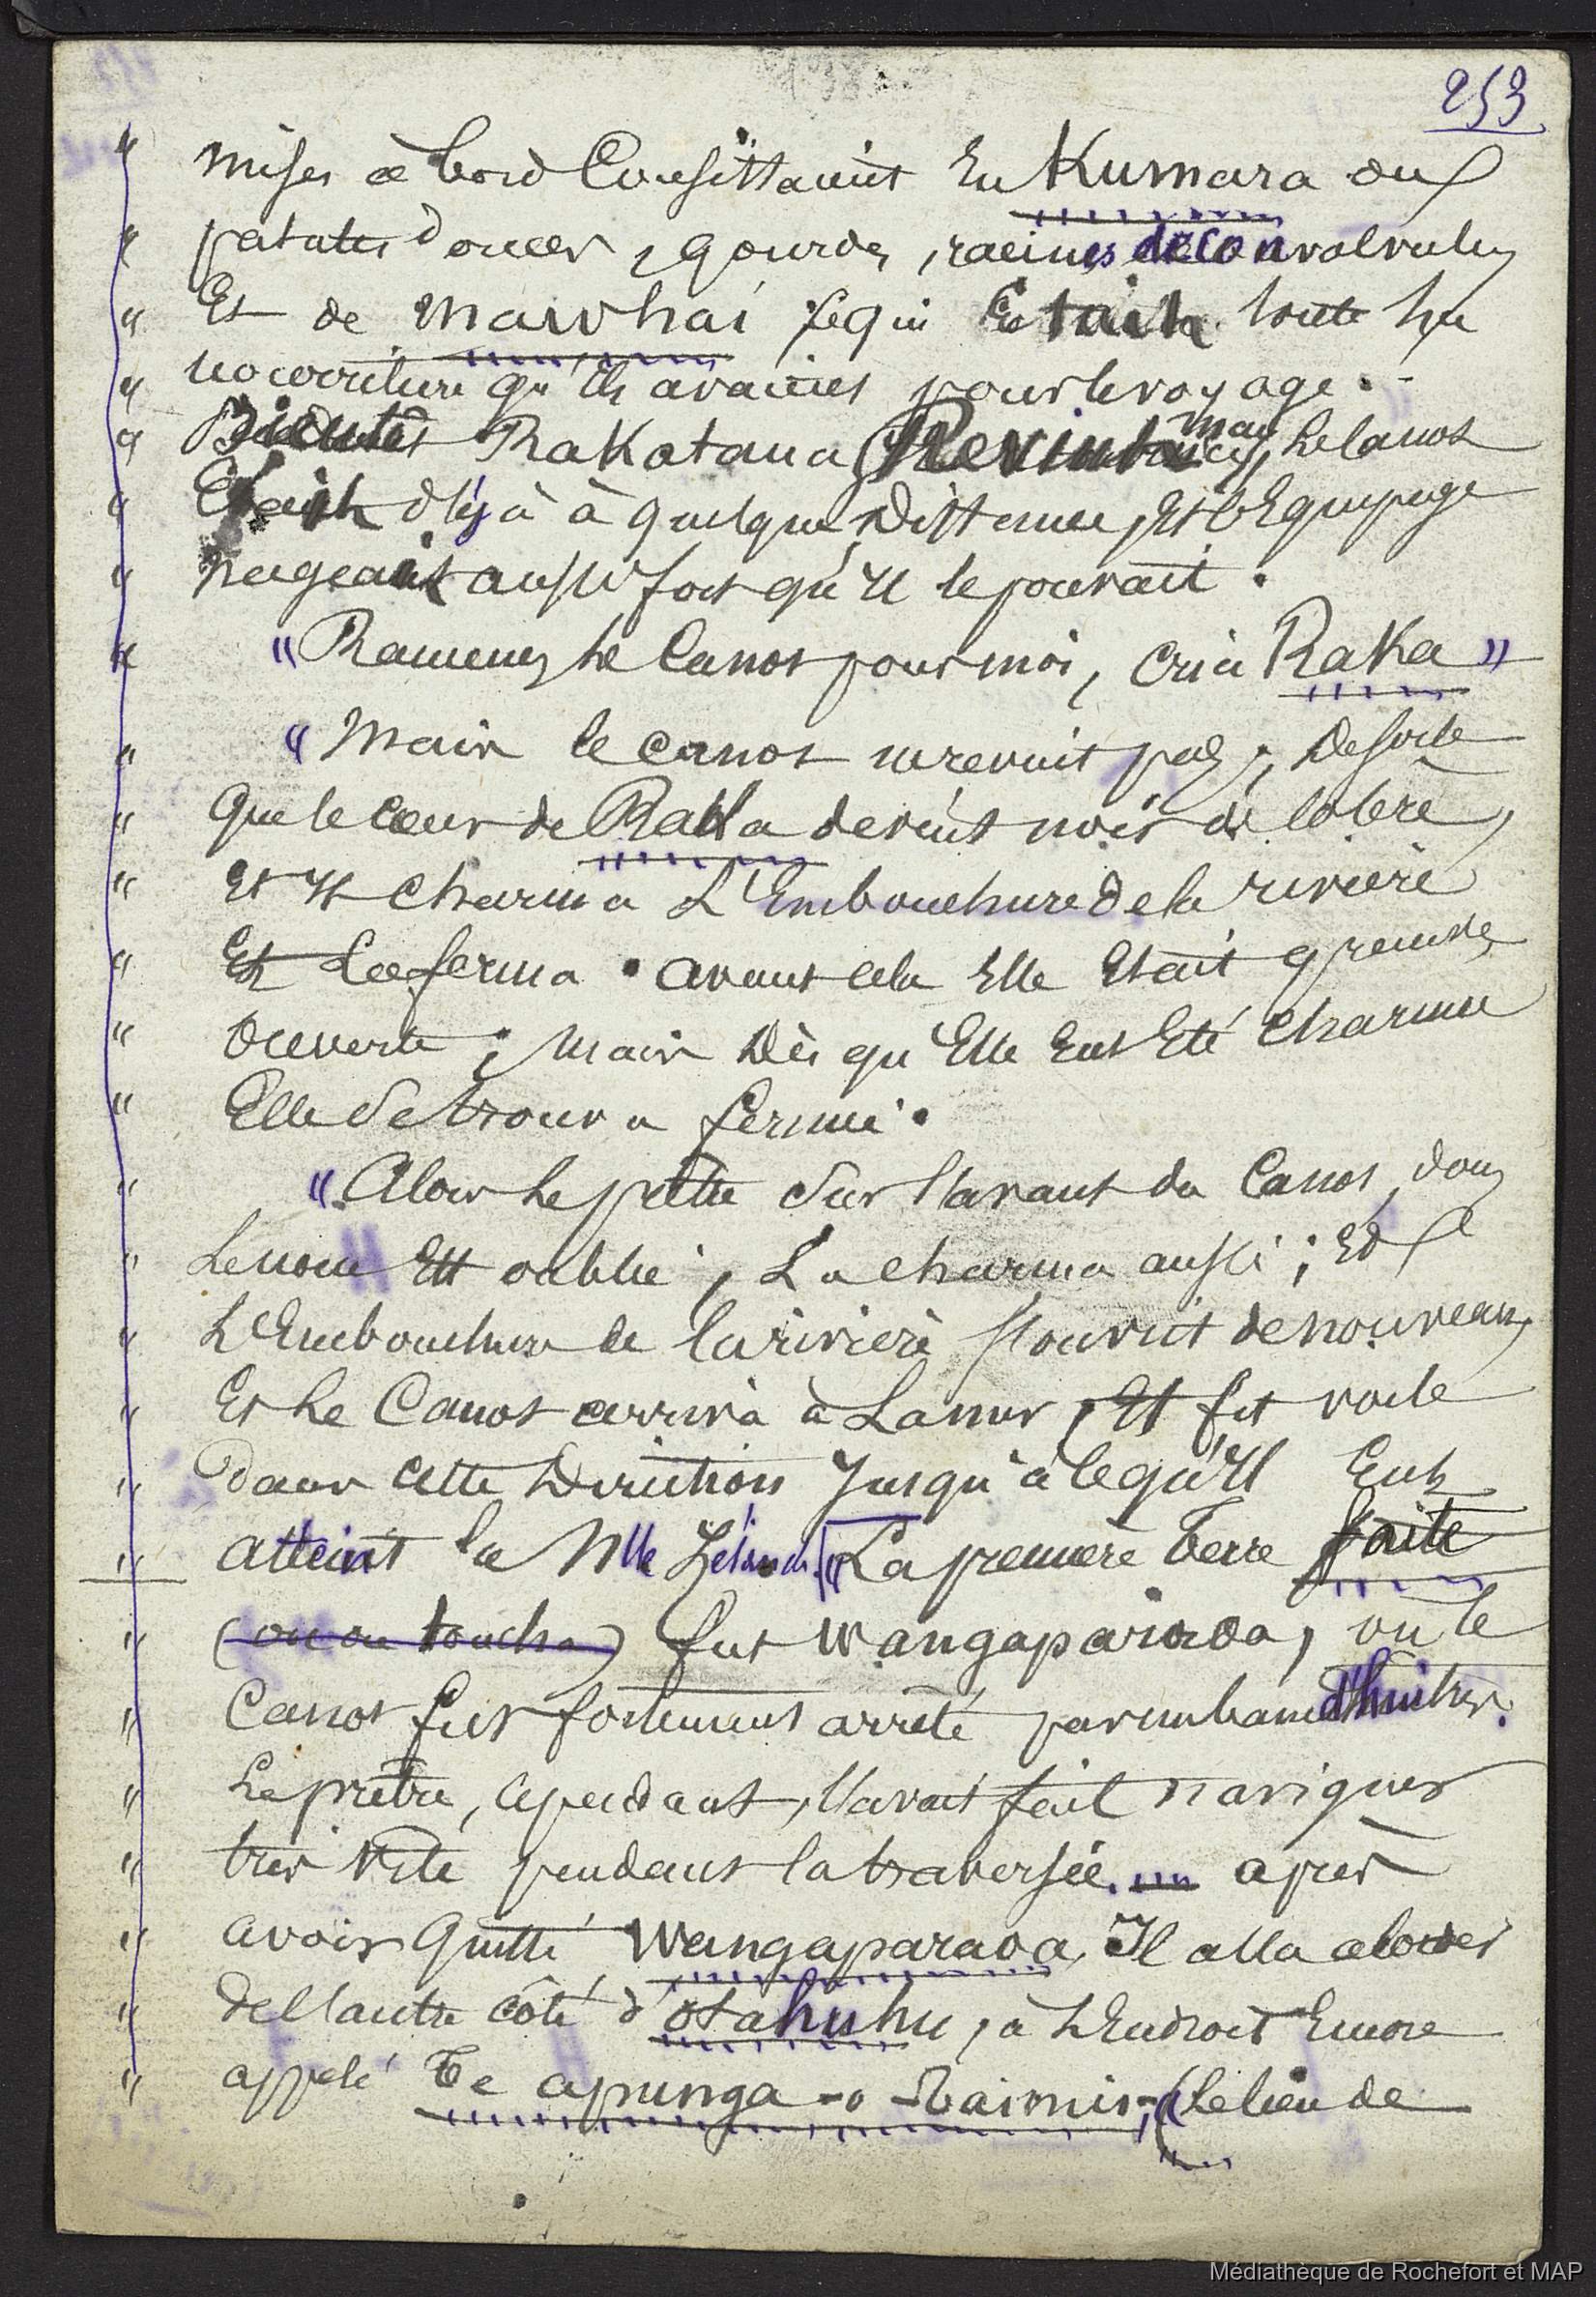 253
" mises à bord Consistaient En Kumara ou
" patates douces, gourdes, racines de convolvulus
" Et de mawhai ce qui Etait toute la
" nourriture qu'ils avaient pour le voyage.
" Bientôt Rakatana Revint mais, Le Canot
" Etait déjà à quelque Distance, Et l'Equipage
" nageait aussi fort qu'Il le pouvait.
" "Ramenez Le Canot pour moi, cria Raka"
" "Mais le canot ne revint pas, De sorte
" Que le cœur de Raka devint noir de colère,
" Et Il charma L'Embouchure de la rivière
" Et La ferma. avant cela Elle Etait grande
" Ouverte; Mais Dès qu'Elle Eut Eté charmée
" Elle Se trouva fermée.
" "Alors Le prêtre Sur l'avant du Canot, dont
" Le nom Est oublié, La charma aussi; Et
" L'Embouchure de la rivière s'ouvrit de nouveau,
" Et Le Canot arriva à La mer, Et fit voile
" Dans cette Direction Jusqu'à ce qu'Il Eut
" atteint la Nlle Zélande. "La première Terre faite
" (ou on toucha) fut Wangaparaoa, où le
" Canot fut fortement arrêté par un banc d'huîtres.
" Le prêtre, cependant, l'avait fait naviguer
" très Vite pendant la traversée. — après
" avoir Quitté Wangaparaoa, Il alla aborder
" de l'autre côté d'Otahuhu, à L'Endroit Encore
" appelé Te apunga-o-Tainui; (le lieu de
Médiathèque de Rochefort et MAP